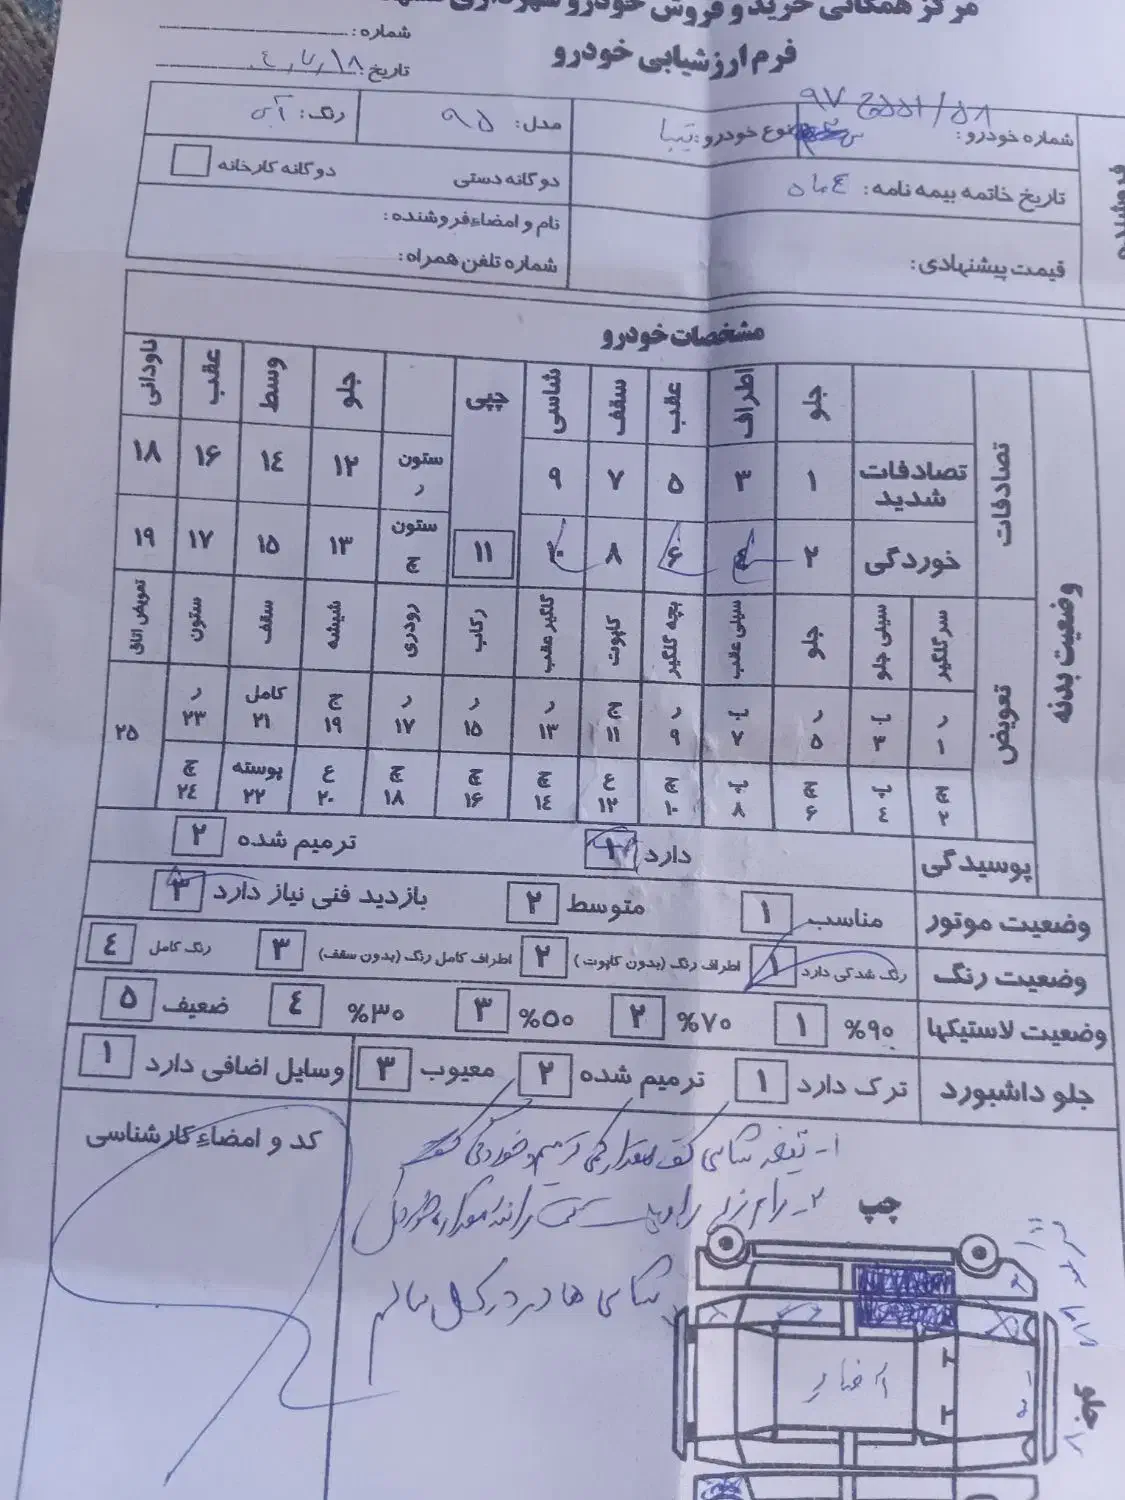 مرکز همگانی خرید و فروش خودرو شهرداری
شماره:
فرم ارزشیابی خودرو
تاریخ:
شماره خودرو:
نوع خودرو: تیبا
مدل: ۹۵
رنگ: آبی
تاریخ خاتمه بیمه نامه: ٤ ماه
دوگانه دستی
دوگانه کارخانه
قیمت پیشنهادی:
نام و امضاء فروشنده:
شماره تلفن همراه:
مشخصات خودرو
وضعیت بدنه
تصادفات
جلو اطراف عقب سقف شاسی چپی جلو وسط عقب ناودانی
تصادفات شدید ۱ ۳ ۵ ۷ ۹ ستون ر ۱۲ ۱٤ ۱۶ ۱۸
خوردگی ۲ ٤ ۶ ۸ ۱۰ ۱۱ ستون چ ۱۳ ۱۵ ۱۷ ۱۹
تعویض
سرگلگیر سینی جلو جلو سینی عقب بچه گلگیر کاپوت گلگیر عقب رکاب رودری شیشه سقف ستون تعویض اتاق
ر ۱ ب ۳ ر ۵ ب ۷ ر ۹ ج ۱۱ ر ۱۳ ر ۱۵ ر ۱۷ ج ۱۹ کامل ۲۱ ر ۲۳ ۲۵
چ ۲ پ ٤ چ ۶ پ ۸ چ ۱۰ ع ۱۲ چ ۱٤ چ ۱۶ چ ۱۸ ع ۲۰ پوسته ۲۲ چ ۲٤
پوسیدگی دارد ۱ ترمیم شده ۲
وضعیت موتور مناسب ۱ متوسط ۲ بازدید فنی نیاز دارد ۳
وضعیت رنگ رنگ شدگی دارد ۱ اطراف رنگ (بدون کاپوت) ۲ اطراف کامل رنگ (بدون سقف) ۳ رنگ کامل ٤
وضعیت لاستیکها ۹۰% ۱ ۷۰% ۲ ۵۰% ۳ ۳۰% ٤ ضعیف ۵
جلو داشبورد ترک دارد ۱ ترمیم شده ۲ معیوب ۳ وسایل اضافی دارد ۱
کد و امضاء کارشناسی
شاسی ها در کل سالم
چپ
جلو